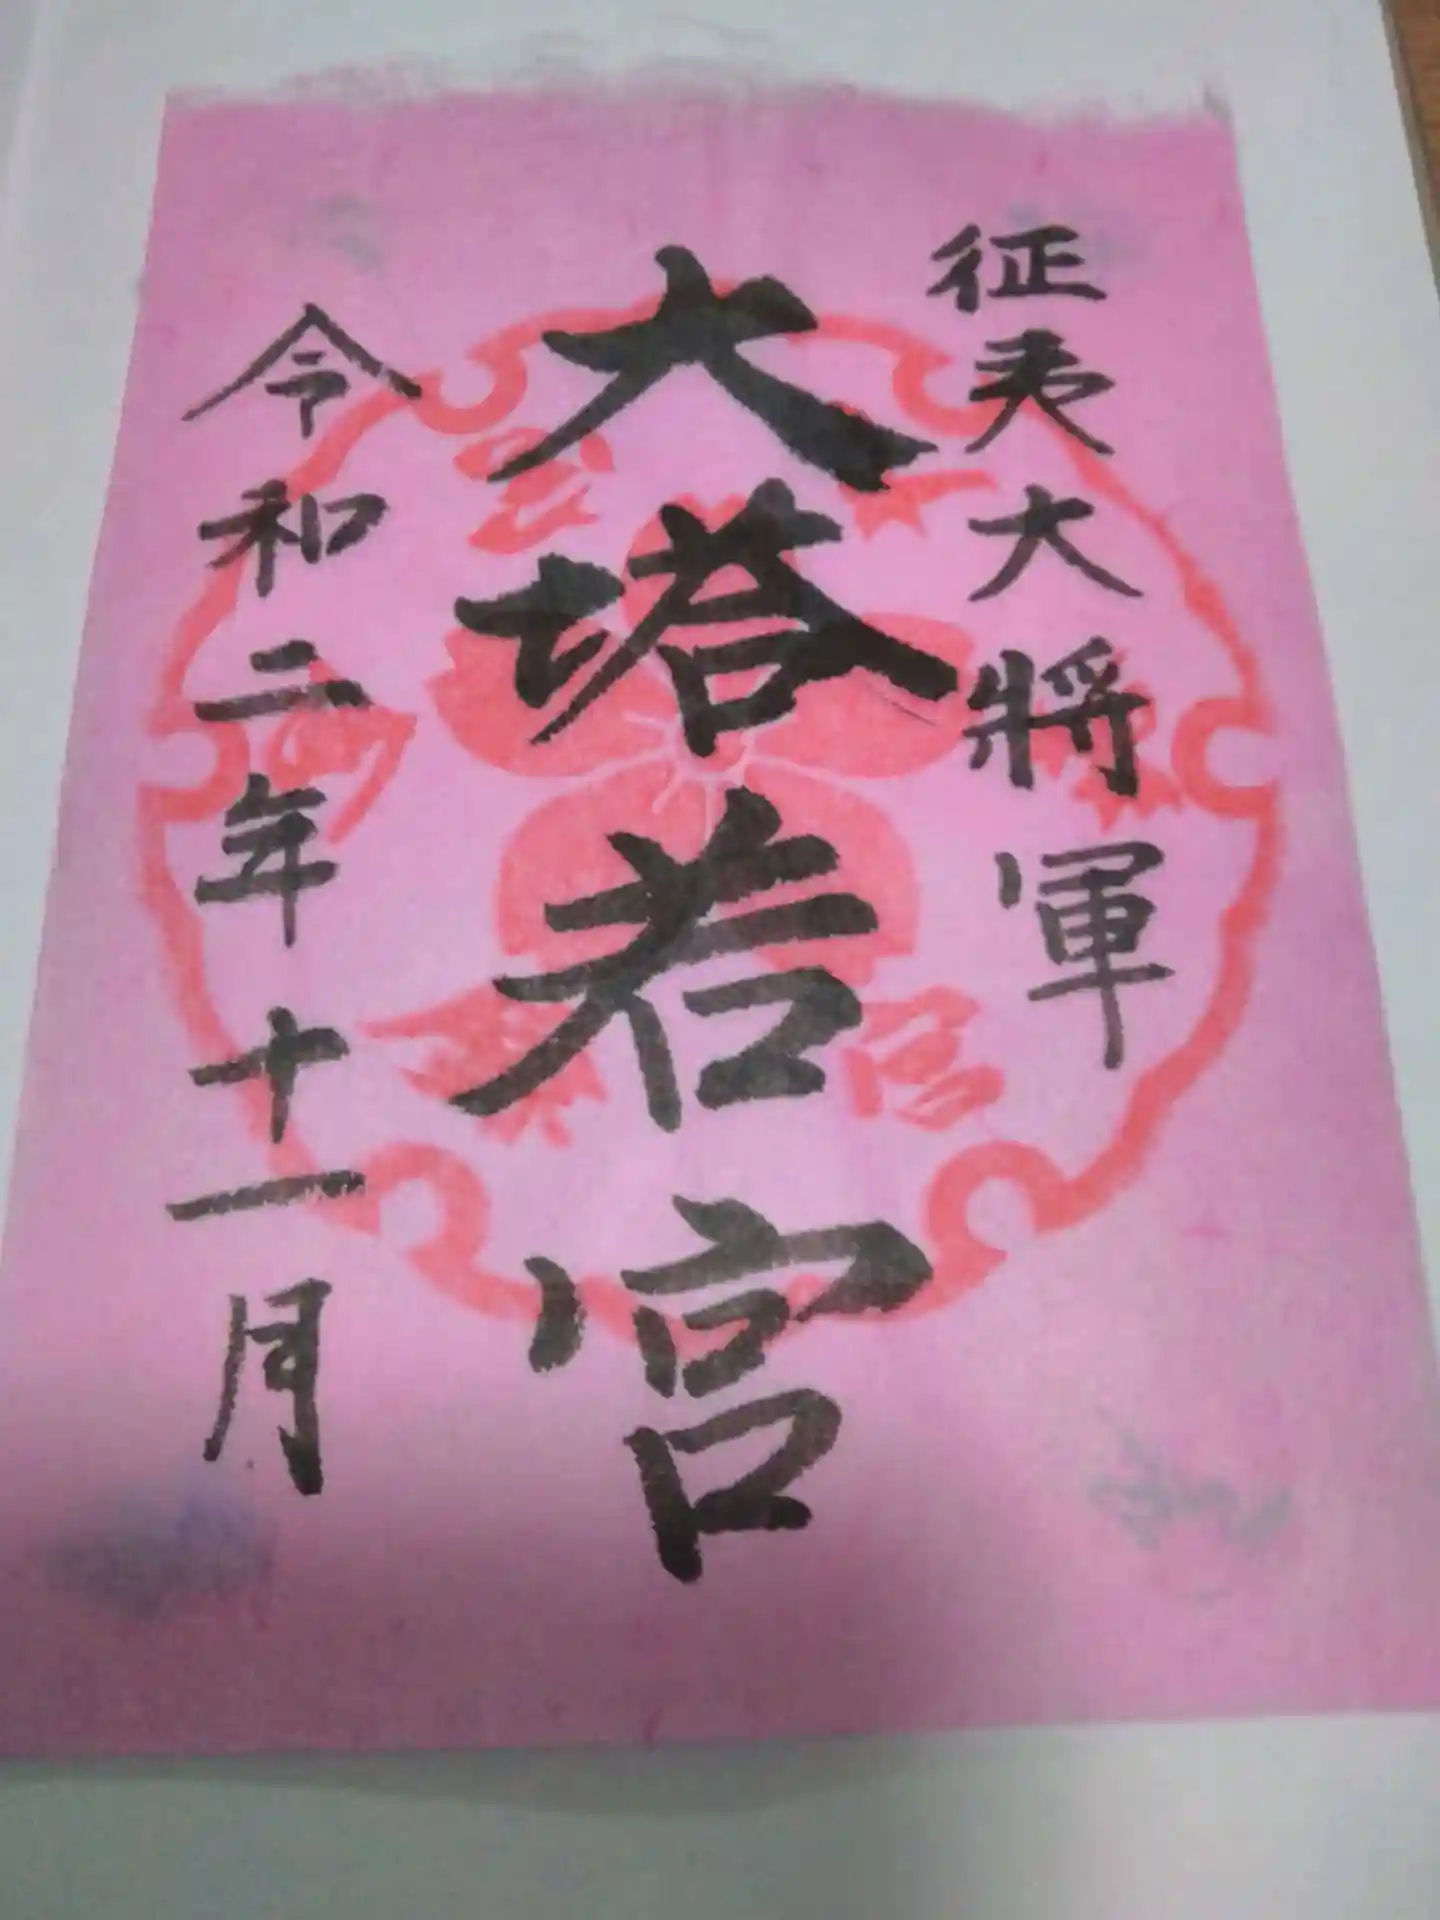 征夷大將軍
大塔若宮
令和二年十一月